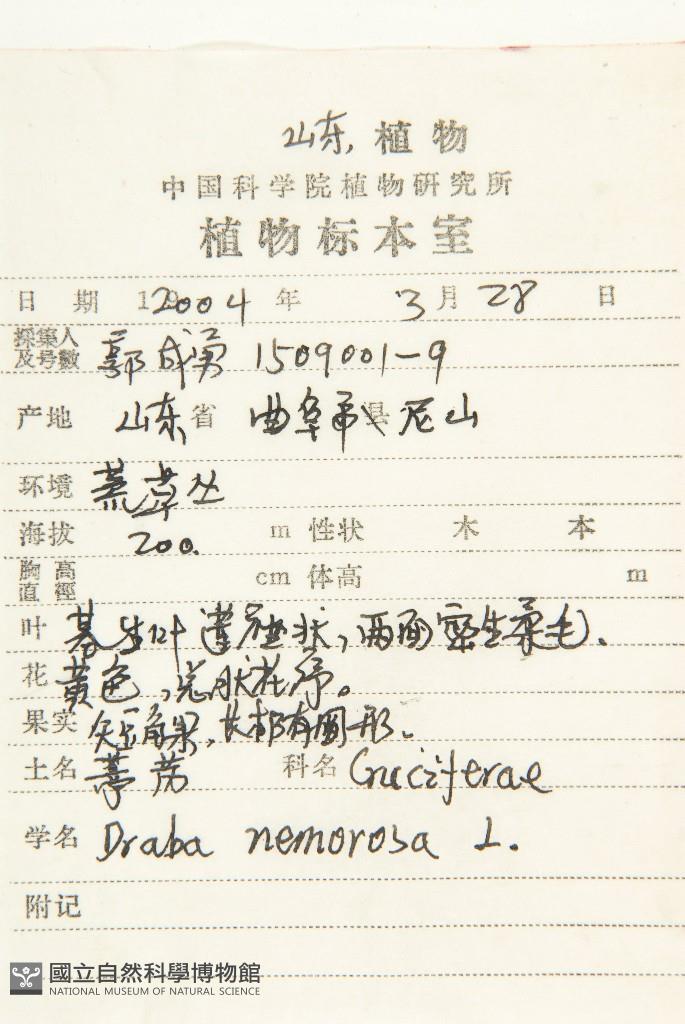 山东 植物
中国科学院植物研究所
植物标本室
日期 19 2004 年 3 月 28 日
採集人及号數 郭成勇 1509001-9
产地 山东省 曲阜市县 尼山
环境 荒草丛
海拔 200. m 性状 木 本
胸高直徑 cm 体高 m
叶 基生叶莲座状,两面密生柔毛.
花 黄色,总状花序。
果实 短角果,长椭圆形.
土名 葶苈 科名 Cruciferae
学名 Draba nemorosa L.
附记
國立自然科學博物館
NATIONAL MUSEUM OF NATURAL SCIENCE